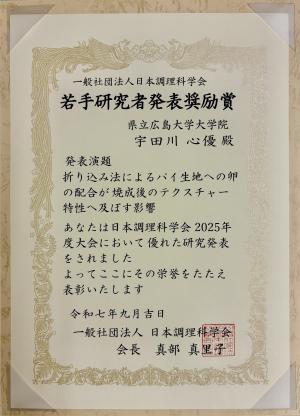 一般社団法人日本調理科学会
若手研究者発表奨励賞
県立広島大学大学院
宇田川 心優 殿
発表演題
折り込み法によるパイ生地への卵
の配合が焼成後のテクスチャー
特性へ及ぼす影響
あなたは日本調理科学会2025年
度大会において優れた研究発表
をされました
よってここにその栄誉をたたえ
表彰いたします
令和七年九月吉日
一般社団法人 日本調理科学会
会長 真部 真里子